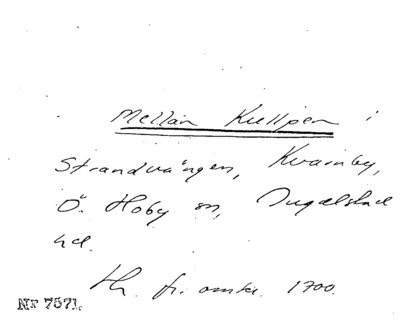 Mellan Kullpen i
Strandvången, Kvarnby,
Ö. Hoby sn, Ingelstad
hd.
Hr. fr. omkr. 1700.
Nr 7571.